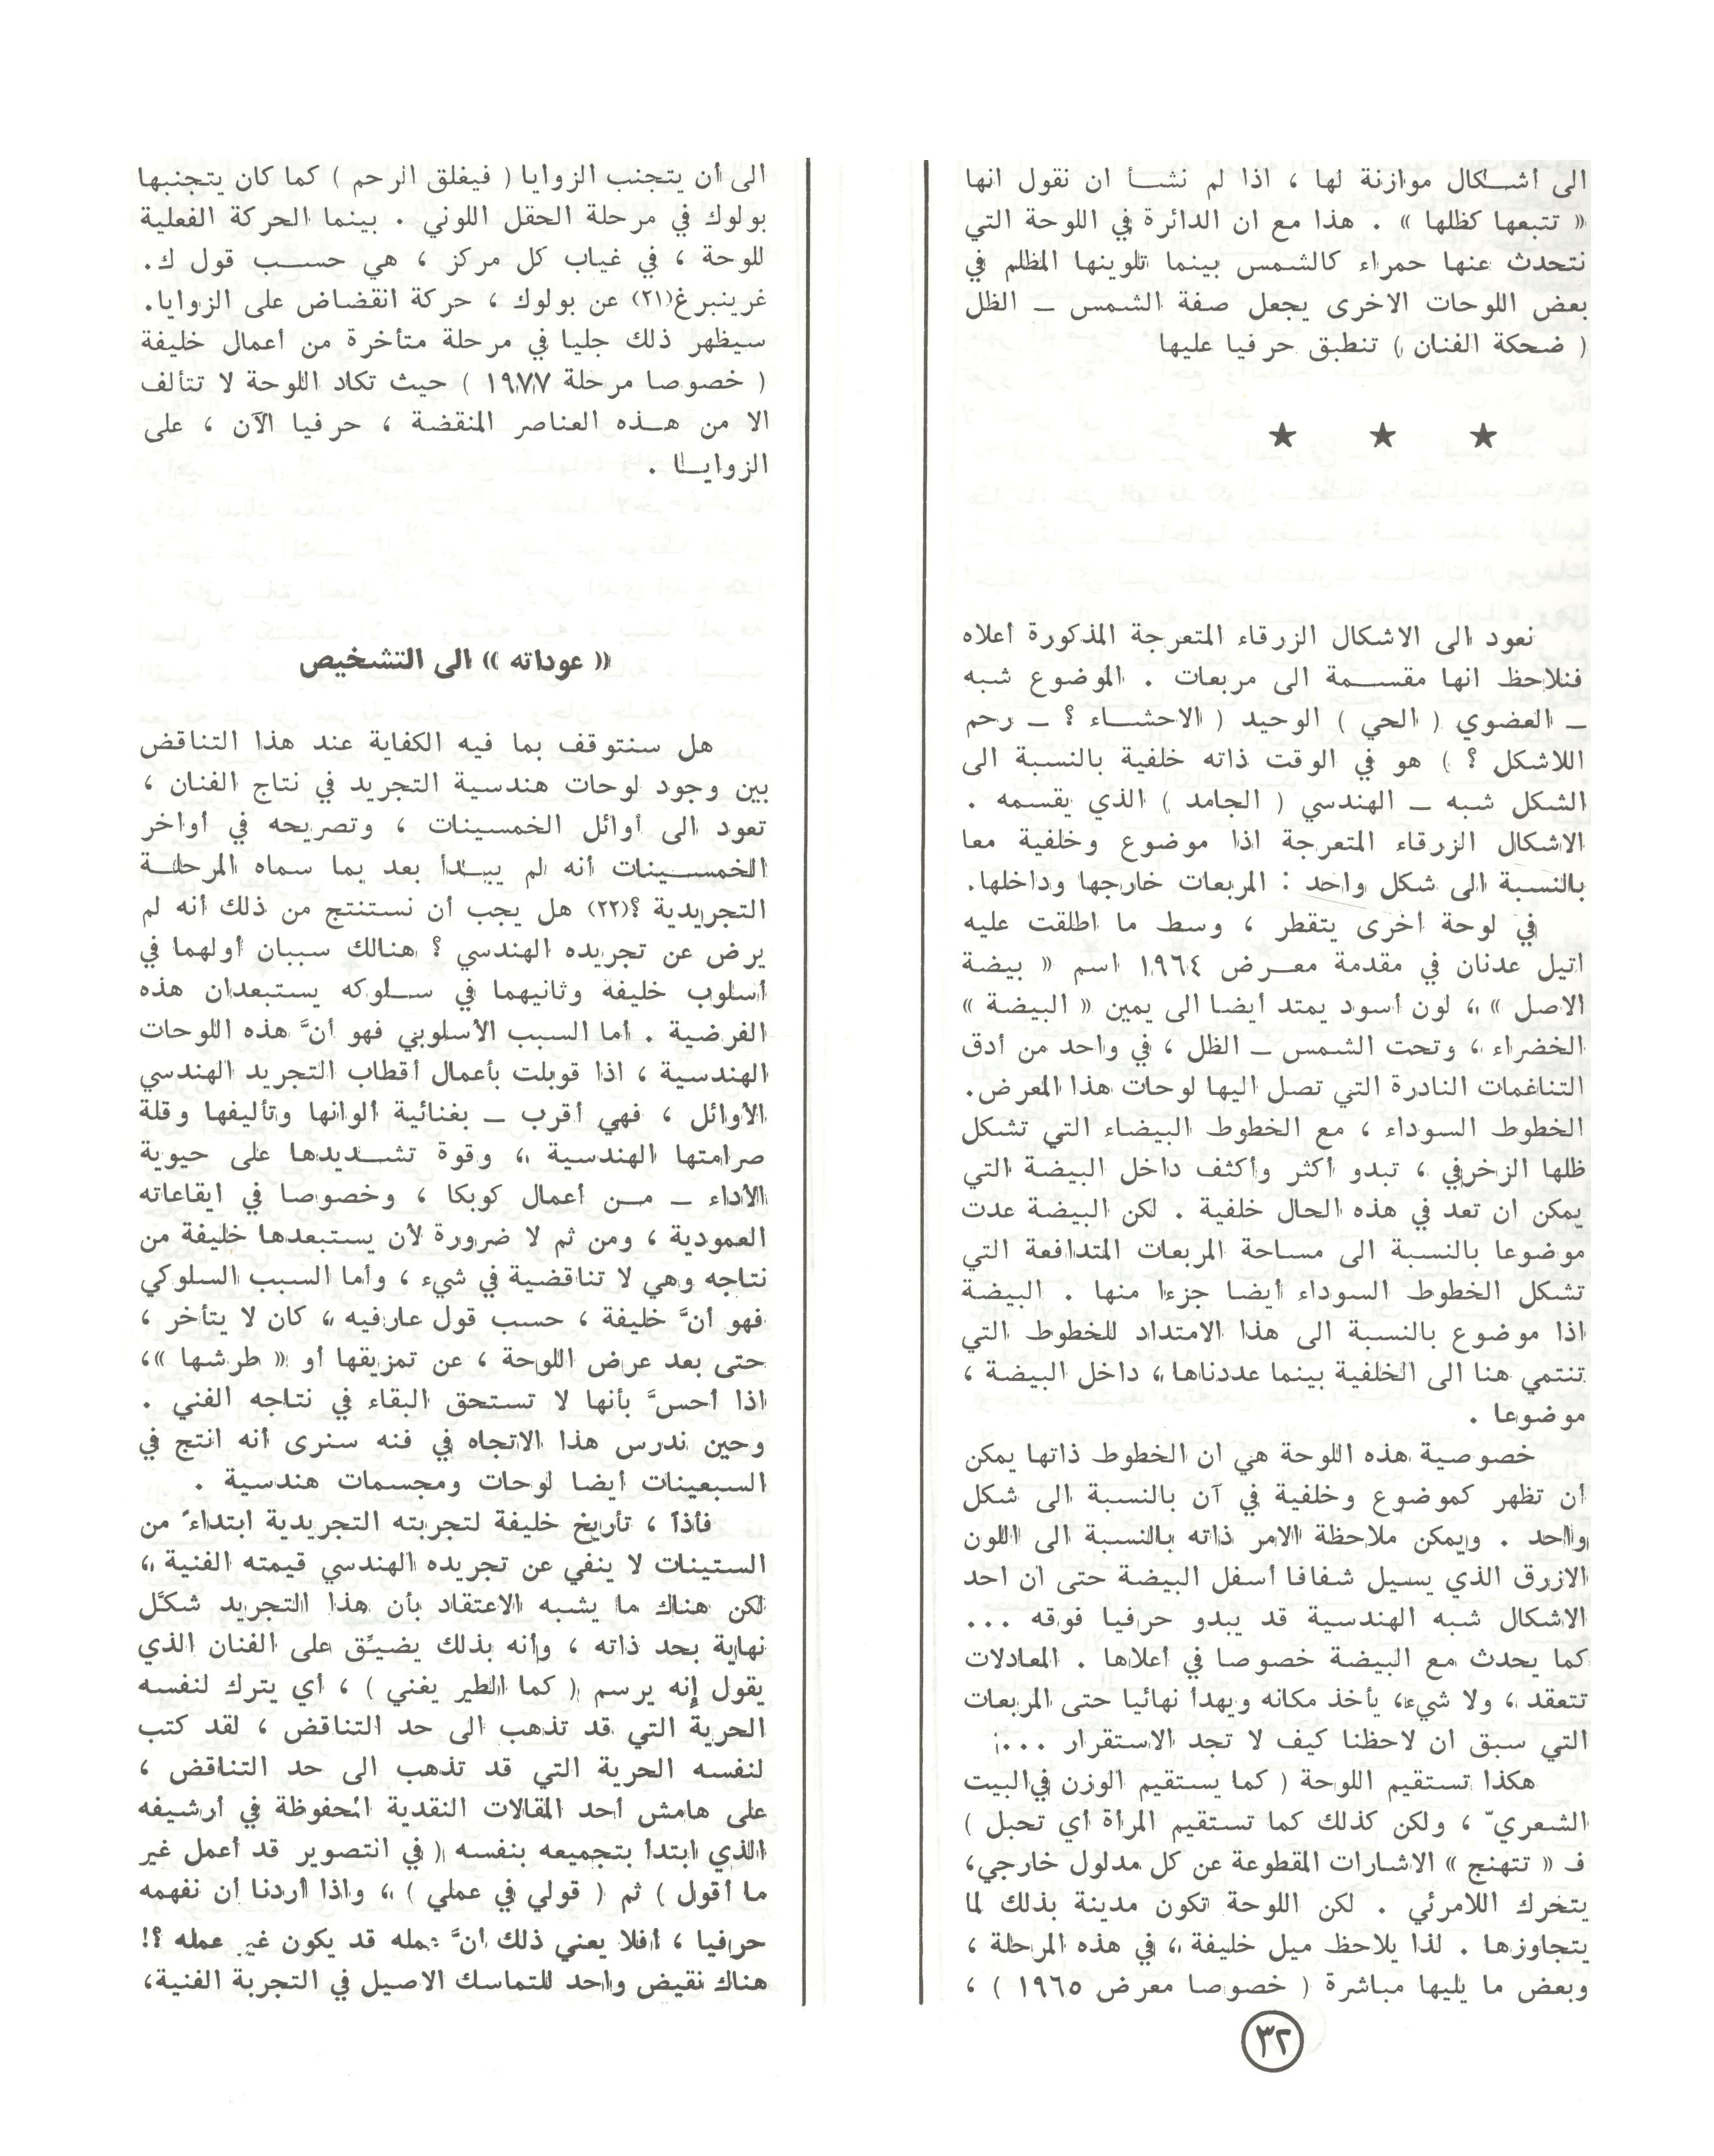 الى أشكال موازنة لها ، اذا لم نشأ ان نقول انها
« تتبعها كظلها » . هذا مع ان الدائرة في اللوحة التي
نتحدث عنها حمراء كالشمس بينما تلوينها المظلم في
بعض اللوحات الاخرى يجعل صفة الشمس ــ الظل
( ضحكة الفنان ) تنطبق حرفيا عليها
★ ★ ★
نعود الى الاشكال الزرقاء المتعرجة المذكورة أعلاه
فنلاحظ انها مقسمة الى مربعات . الموضوع شبه
ــ العضوي ( الحي ) الوحيد ( الاحشاء ؟ ــ رحم
اللاشكل ؟ ) هو في الوقت ذاته خلفية بالنسبة الى
الشكل شبه ــ الهندسي ( الجامد ) الذي يقسمه .
الاشكال الزرقاء المتعرجة اذا موضوع وخلفية معا
بالنسبة الى شكل واحد : المربعات خارجها وداخلها.
في لوحة اخرى يتقطر ، وسط ما اطلقت عليه
اتيل عدنان في مقدمة معرض ١٩٦٤ اسم « بيضة
الاصل » ، لون أسود يمتد أيضا الى يمين « البيضة »
الخضراء ، وتحت الشمس ــ الظل ، في واحد من أدق
التناغمات النادرة التي تصل اليها لوحات هذا المعرض.
الخطوط السوداء ، مع الخطوط البيضاء التي تشكل
ظلها الزخرفي ، تبدو أكثر وأكثف داخل البيضة التي
يمكن ان تعد في هذه الحال خلفية . لكن البيضة عدت
موضوعا بالنسبة الى مساحة المربعات المتدافعة التي
تشكل الخطوط السوداء أيضا جزءا منها . البيضة
اذا موضوع بالنسبة الى هذا الامتداد للخطوط التي
تنتمي هنا الى الخلفية بينما عددناها ، داخل البيضة ،
موضوعا .
خصوصية هذه اللوحة هي ان الخطوط ذاتها يمكن
أن تظهر كموضوع وخلفية في آن بالنسبة الى شكل
واحد . ويمكن ملاحظة الامر ذاته بالنسبة الى اللون
الازرق الذي يسيل شفافا أسفل البيضة حتى ان احد
الاشكال شبه الهندسية قد يبدو حرفيا فوقه ...
كما يحدث مع البيضة خصوصا في أعلاها . المعادلات
تتعقد ، ولا شيء، يأخذ مكانه ويهدأ نهائيا حتى المربعات
التي سبق ان لاحظنا كيف لا تجد الاستقرار ...
هكذا تستقيم اللوحة ( كما يستقيم الوزن في البيت
الشعريّ ، ولكن كذلك كما تستقيم المرأة أي تحبل )
ف « تتهنج » الاشارات المقطوعة عن كل مدلول خارجي،
يتحرك اللامرئي . لكن اللوحة تكون مدينة بذلك لما
يتجاوزها . لذا يلاحظ ميل خليفة ، في هذه المرحلة ،
وبعض ما يليها مباشرة ( خصوصا معرض ١٩٦٥ ) ،
الى أن يتجنب الزوايا ( فيغلق الرحم ) كما كان يتجنبها
بولوك في مرحلة الحقل اللوني . بينما الحركة الفعلية
للوحة ، في غياب كل مركز ، هي حسب قول ك.
غرينبرغ(٢١) عن بولوك ، حركة انقضاض على الزوايا.
سيظهر ذلك جليا في مرحلة متأخرة من أعمال خليفة
( خصوصا مرحلة ١٩٧٧ ) حيث تكاد اللوحة لا تتألف
الا من هذه العناصر المنقضة ، حرفيا الآن ، على
الزوايا .
« عوداته » الى التشخيص
هل سنتوقف بما فيه الكفاية عند هذا التناقض
بين وجود لوحات هندسية التجريد في نتاج الفنان ،
تعود الى أوائل الخمسينات ، وتصريحه في أواخر
الخمسينات أنه لم يبدأ بعد بما سماه المرحلة
التجريدية ؟(٢٢) هل يجب أن نستنتج من ذلك أنه لم
يرض عن تجريده الهندسي ؟ هنالك سببان أولهما في
أسلوب خليفة وثانيهما في سلوكه يستبعدان هذه
الفرضية . أما السبب الأسلوبي فهو أنَّ هذه اللوحات
الهندسية ، اذا قوبلت بأعمال أقطاب التجريد الهندسي
الأوائل ، فهي أقرب ــ بغنائية ألوانها وتأليفها وقلة
صرامتها الهندسية ، وقوة تشديدها على حيوية
الأداء ــ من أعمال كوبكا ، وخصوصا في ايقاعاته
العمودية ، ومن ثم لا ضرورة لأن يستبعدها خليفة من
نتاجه وهي لا تناقضية في شيء ، وأما السبب السلوكي
فهو أنَّ خليفة ، حسب قول عارفيه ، كان لا يتأخر ،
حتى بعد عرض اللوحة ، عن تمزيقها أو « طرشها »،
اذا أحسَّ بأنها لا تستحق البقاء في نتاجه الفني .
وحين ندرس هذا الاتجاه في فنه سنرى أنه انتج في
السبعينات أيضا لوحات ومجسمات هندسية .
فأذاً ، تأريخ خليفة لتجربته التجريدية ابتداءً من
الستينات لا ينفي عن تجريده الهندسي قيمته الفنية ،
لكن هناك ما يشبه الاعتقاد بأن هذا التجريد شكَّل
نهاية بحد ذاته ، وأنه بذلك يضيِّق على الفنان الذي
يقول إنه يرسم ( كما الطير يغني ) ، أي يترك لنفسه
الحرية التي قد تذهب الى حد التناقض ، لقد كتب
لنفسه الحرية التي قد تذهب الى حد التناقض ،
على هامش أحد المقالات النقدية المحفوظة في أرشيفه
الذي ابتدأ بتجميعه بنفسه ( في التصوير قد أعمل غير
ما أقول ) ثم ( قولي في عملي ) ، واذا أردنا أن نفهمه
حرفيا ، أفلا يعني ذلك أنَّ عمله قد يكون غير عمله ؟!
هناك نقيض واحد للتماسك الاصيل في التجربة الفنية،
٣٢